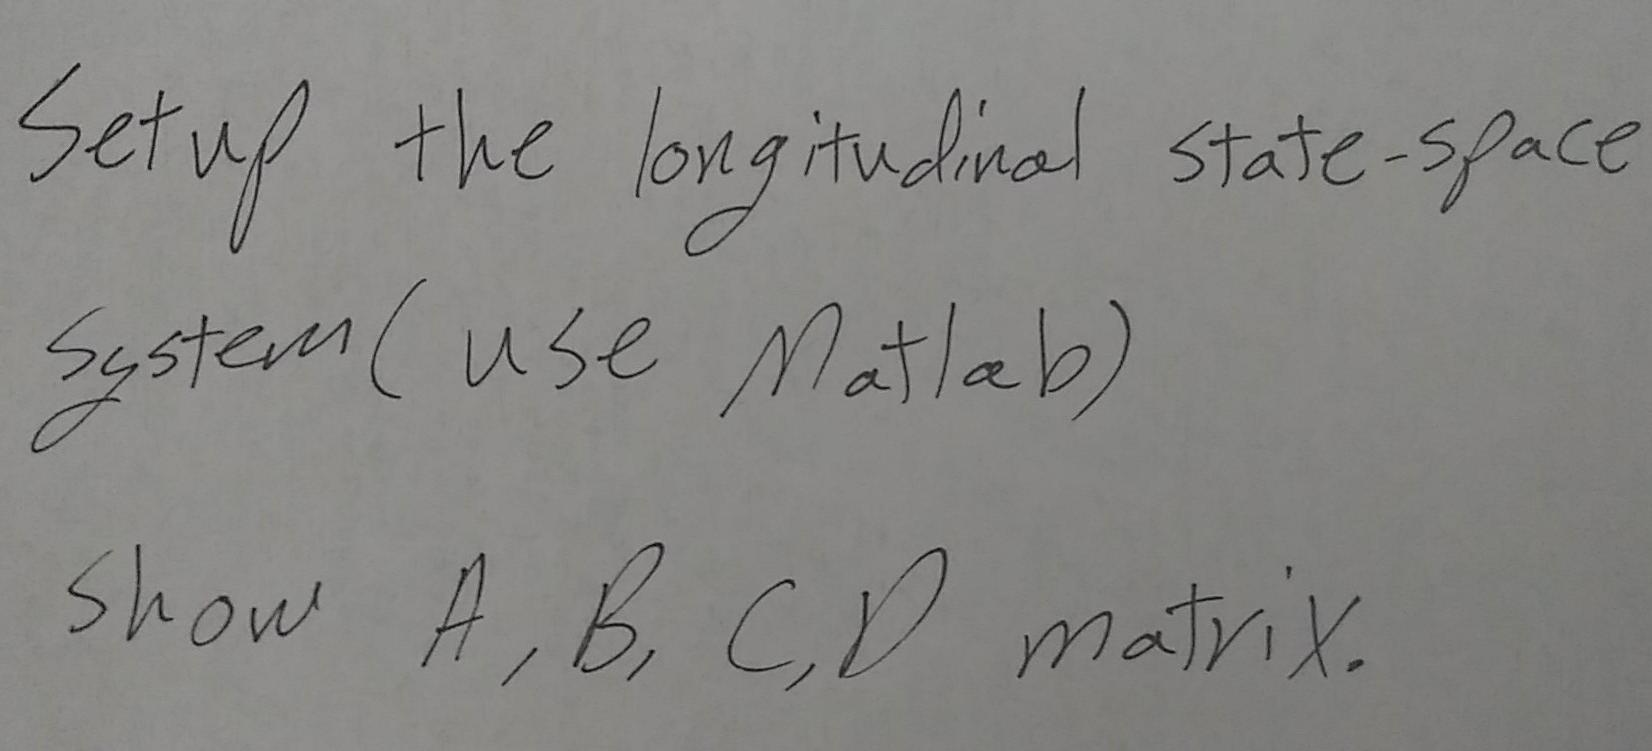 Setup the longitudinal state-space
system (use Matlab)
show A, B, C, D matrix.